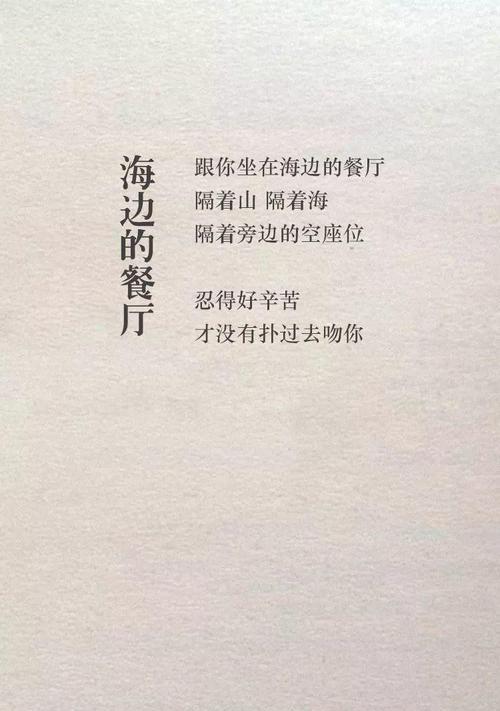 海边的餐厅
跟你坐在海边的餐厅
隔着山 隔着海
隔着旁边的空座位
忍得好辛苦
才没有扑过去吻你